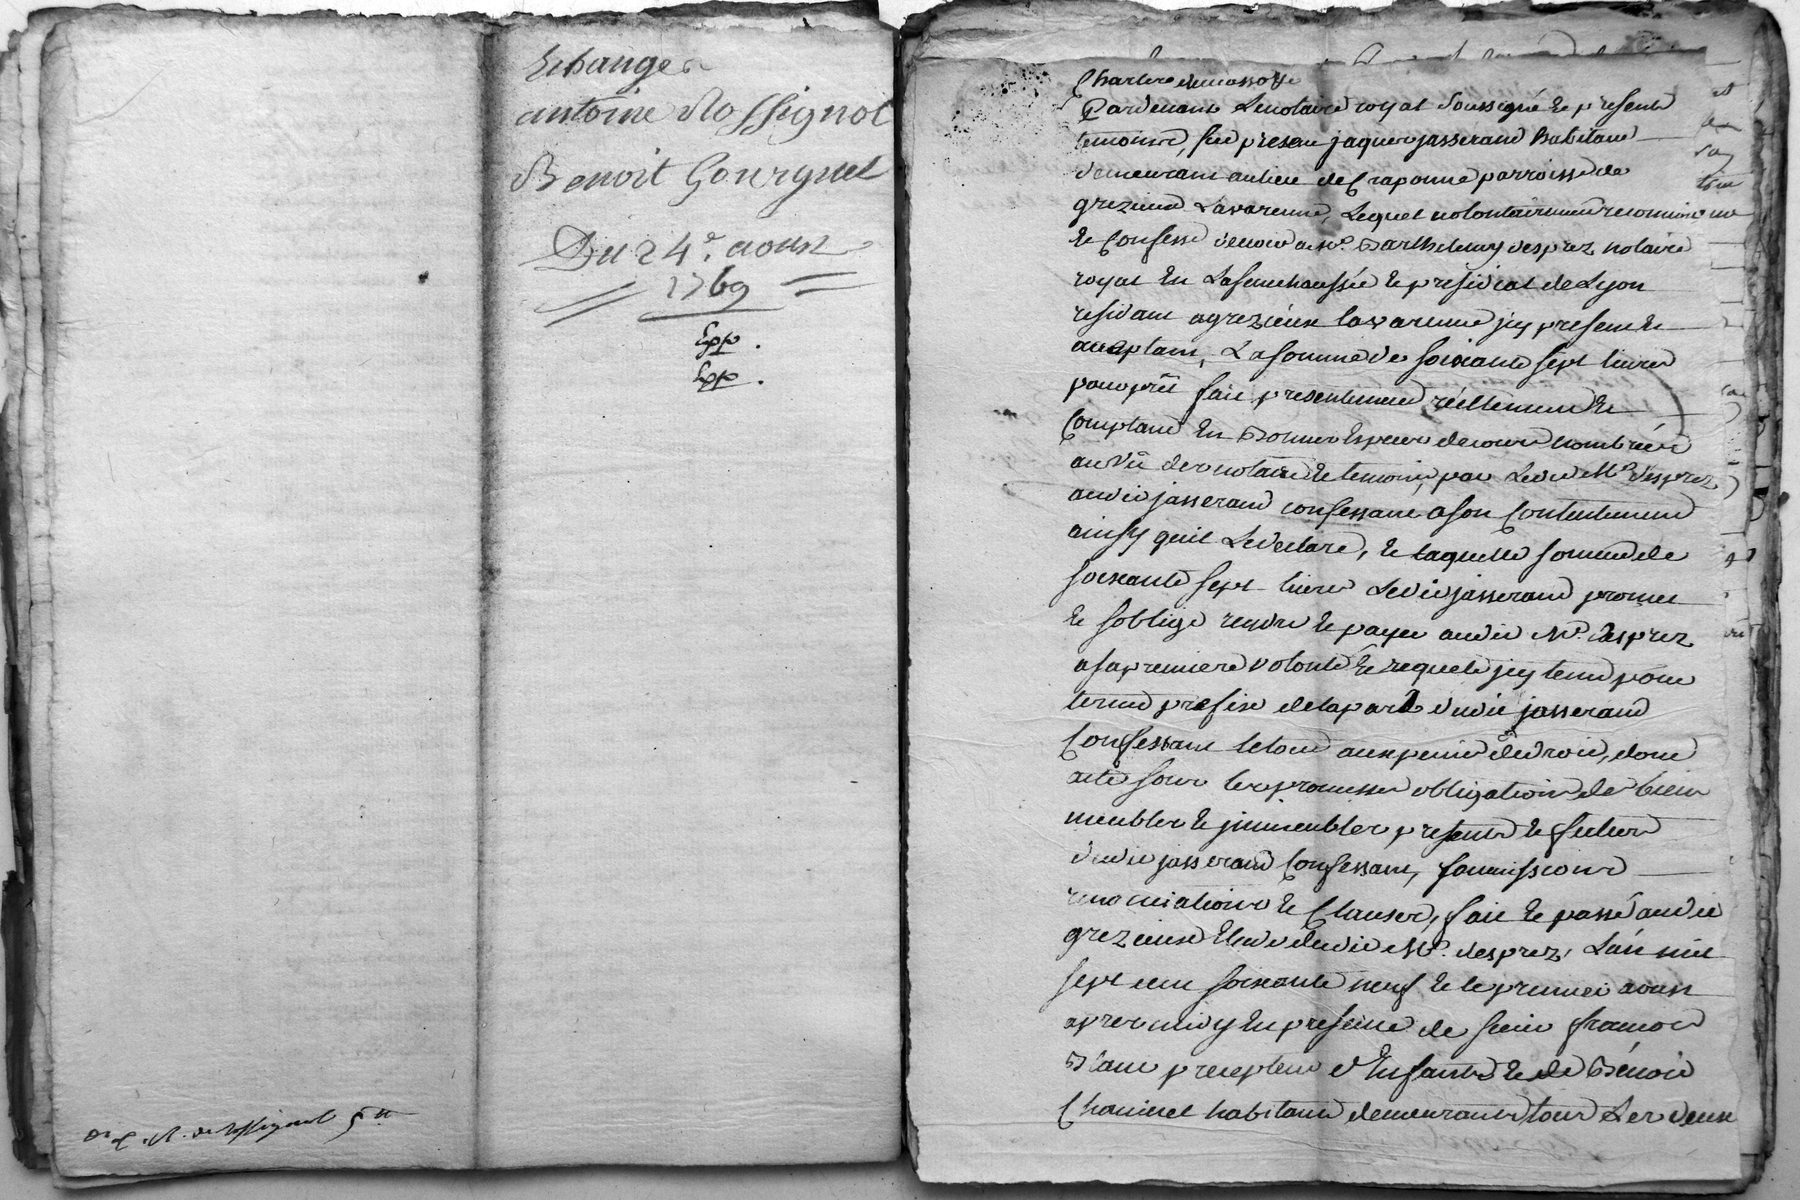 Echange
antoine Rossignol
Benoit Gourguet
Du 24e. aoust
1769
Exp.
Exp.
Pardevant Le notaire royal soussigné Et presents
temoins, fut present jaques jasserand habitant
demeurant au lieu de Craponne parroisse de
grezieux Lavarenne, Lequel volontairement
Et Confesse devoir a Me. Barthelemy desprez notaire
royal En La senechaussée Et presidial de Lyon
residant a grezieux lavarenne jcy present Et
acceptant, La somme de soixante sept livres
pour prêt fait presentement réellement Et
Comptant En Bonnes Especes de cours nombrées
au vû des notaire Et temoins, par Ledit Me. desprez
audit jasserand confessant a son Contentement
ainsy quil Le declare, Et laquelle somme de
soixante sept livres Ledit jasserand promet
Et soblige rendre Et payer audit Me. desprez
a sa premiere volonté Et requete jcy tenu pour
terme prefix de la part dudit jasserand
Confessant le tout aux peines de droit, dont
acte sous les promesses obligations de biens
meubles Et jmmeubles presents Et futurs
dudit jasserand Confessant, soumissions
renonciations Et Clauses, fait Et passé audit
grezieux Etude dudit Me. desprez, L'an mil
sept cent soixante neuf Et le premier aoust
apres midy En presence de sieur francois
precepteur d'Enfants Et de Benoit
habitants demeurants tous Les deux